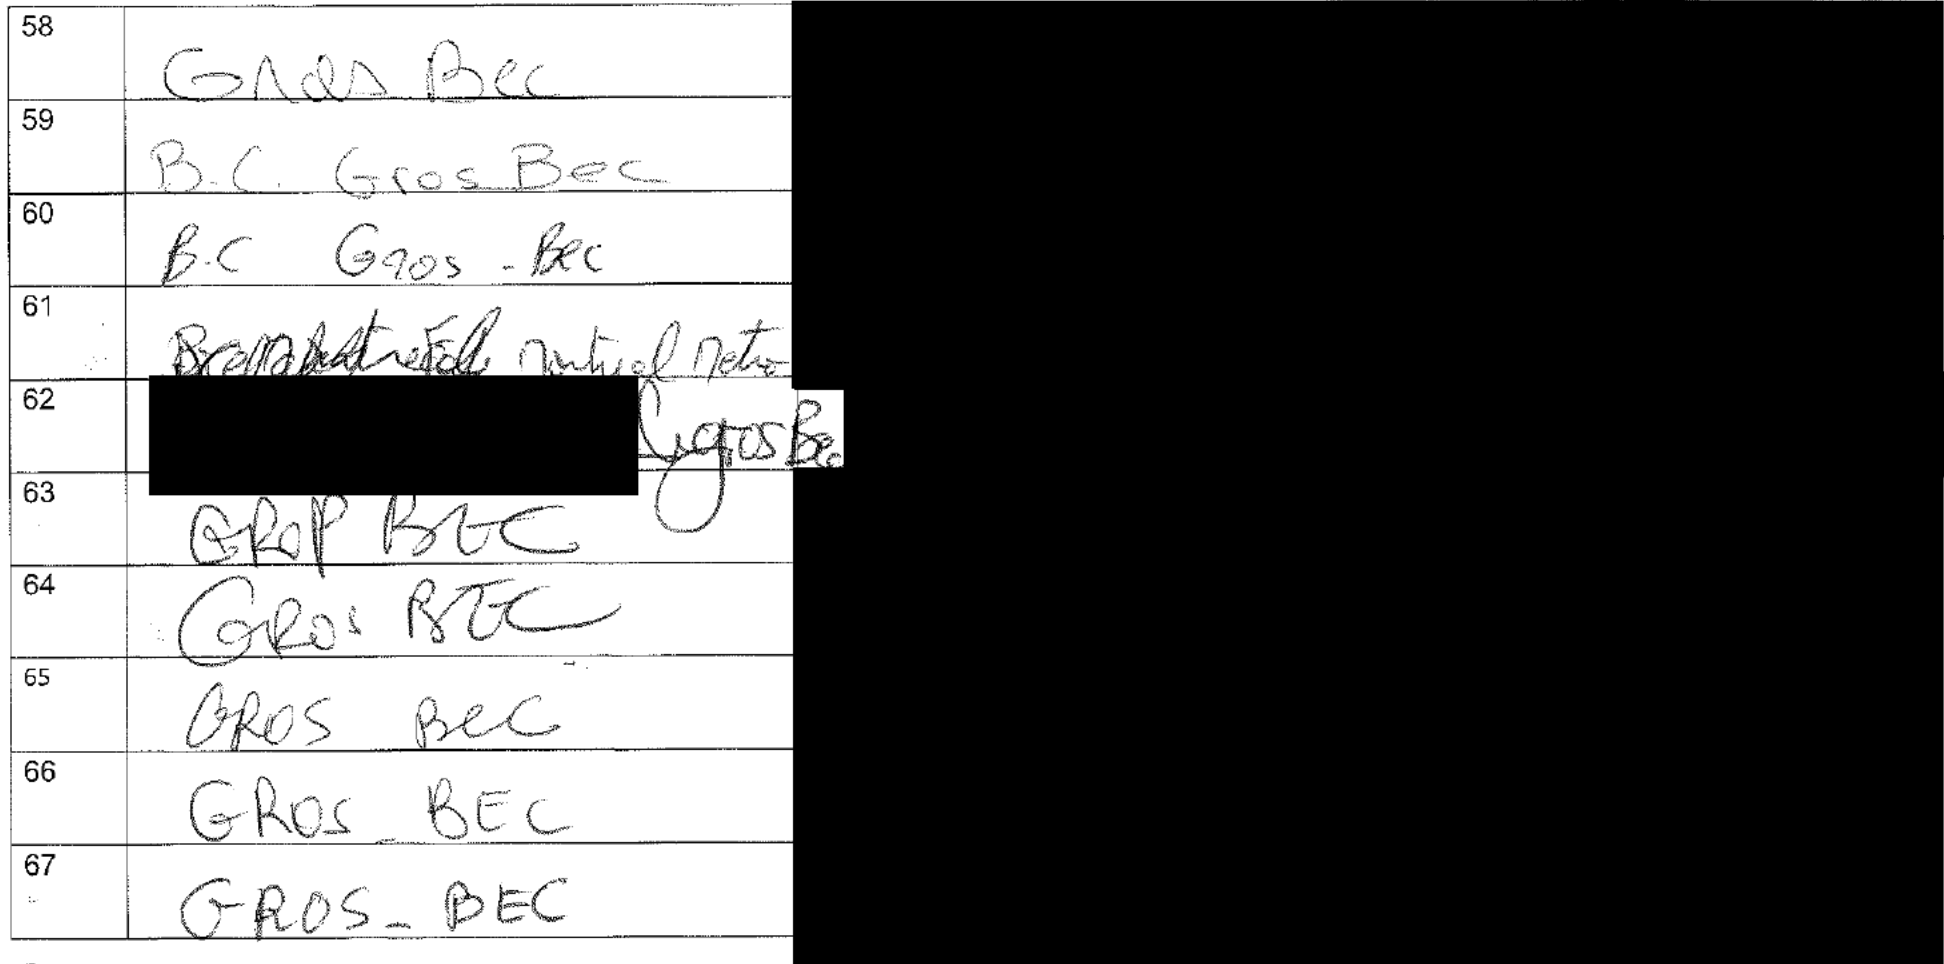 58 Gros Bec
59 B.C. Gros Bec
60 B.C Gros - Bec
61
62 Gros Bec
63 GROP BEC
64 GROS BEC
65 GROS BeC
66 GROS - BEC
67 GROS - BEC